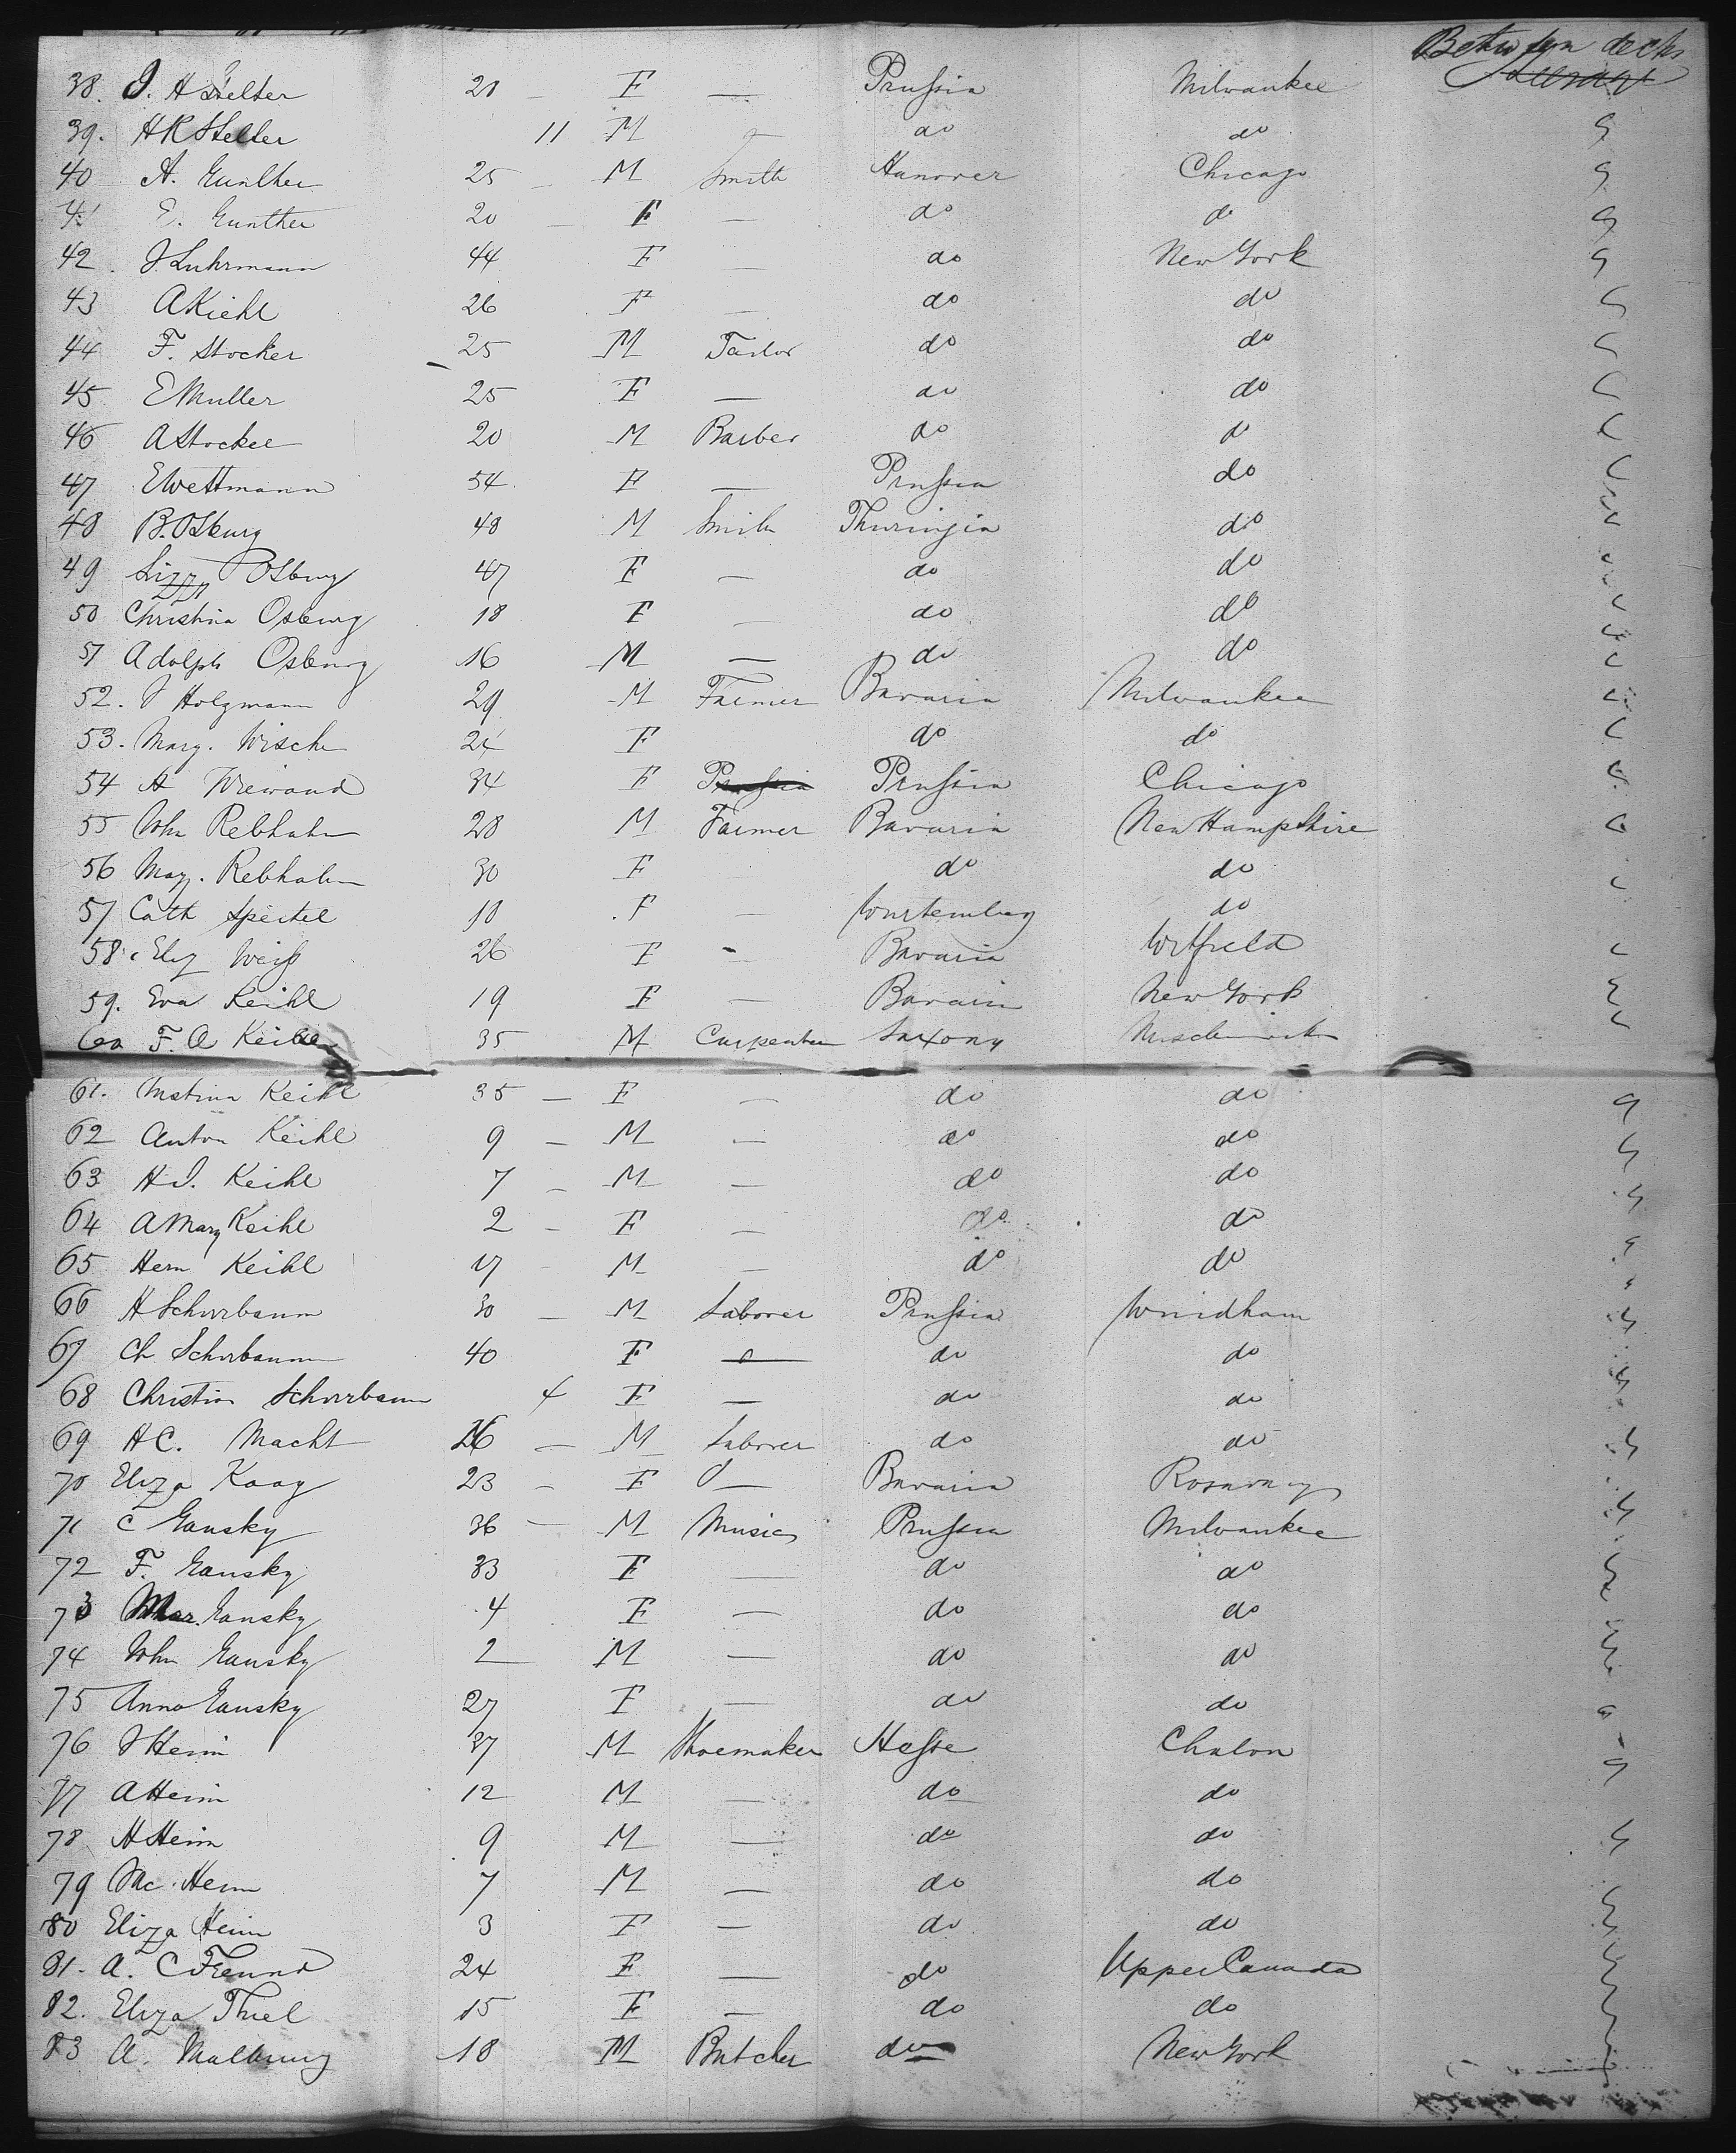 Between decks
38. J. H Stelter 21 — F — Prussia Milwaukee Steerage
39. H R Stelter 11 M — do do
40 A. Gunther 25 — M Smith Hanover Chicago
41 E. Gunther 20 — F — do do
42. J. Luhrmann 44 F — do New York
43 A Kiehl 26 F — do do
44 F. Stocker 25 M Tailor do do
45 E Muller 25 F — do do
46 A Stocker 20 M Barber do do
47 E Wettmann 54 F — Prussia do
48 B. Osburg 48 M Smith Thuringia do
49 Lizz Osburg 47 F — do do
50 Christina Osburg 18 F — do do
51 Adolph Osburg 16 M — do do
52. J Holzmann 29 M Farmer Bavaria Milwaukee
53. Marg. Wisch 24 F do do
54 A Wiewand 34 F Prussia Prussia Chicago
55 John Rebhahn 28 M Farmer Bavaria New Hampshire
56 Marg. Rebhahn 30 F do do
57 Cath Speitel 18 F — Wurtemburg do
58. Eliz Weiß 26 F — Bavaria
59. Eva Keihl 19 F — Bavaria New York
60 F. A Keihl 35 M Carpenter Saxony
61. Keihl 35 — F — do do
62 Anton Keihl 9 — M — do do
63 H J. Keihl 7 — M — do do
64 A Mary Keihl 2 — F — do do
65 Hern Keihl 17 — M — do do
66 H Schorrbaum 30 — M Laborer Prussia Windham
67 Ch Schorbaum 40 F — do do
68 Christina Schorrbaum 4 F — do do
69 H C. Macht 26 — M Laborer do do
70 Eliza Kaag 23 — F — Bavaria
71 C Gansky 36 — M Music Prussia Milwaukee
72 F. Gansky 33 F — do do
73 Mar. Gansky 4 F — do do
74 John Gansky 2 M — do do
75 Anna Gansky 27 F — do do
76 J Heim 37 M Shoemaker Hesse Chalon
77 A Heim 12 M — do do
78 H Heim 9 M — do do
79 Heim 7 M — do do
80 Eliza Heim 3 F — do do
81. A. C Freund 24 F — do Upper Canada
82. Eliza Thiel 15 F — do do
83 A. 18 M Butcher do New York